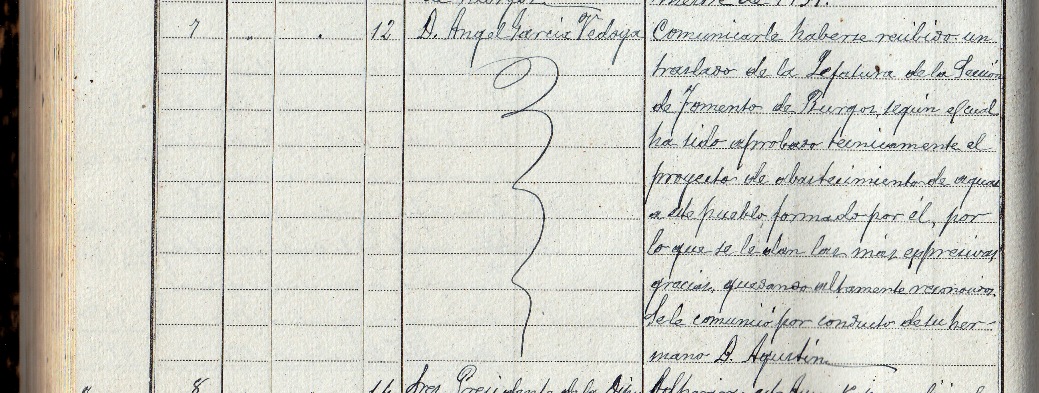 7 " . 12 D. Angel Garcia Vedoya Comunicarle haberse recibido un
traslado de la Jefatura de la Sección
de Fomento de Burgos, según el cual
ha sido aprobado tecnicamente el
proyecto de abastecimiento de aguas
a este pueblo, formado por él, por
lo que se le dan las más expresivas
gracias, quedando altamente reconocidos.
Se le comunicó por conducto de su her-
mano D. Agustin
8 14 Sres. Presidente de la